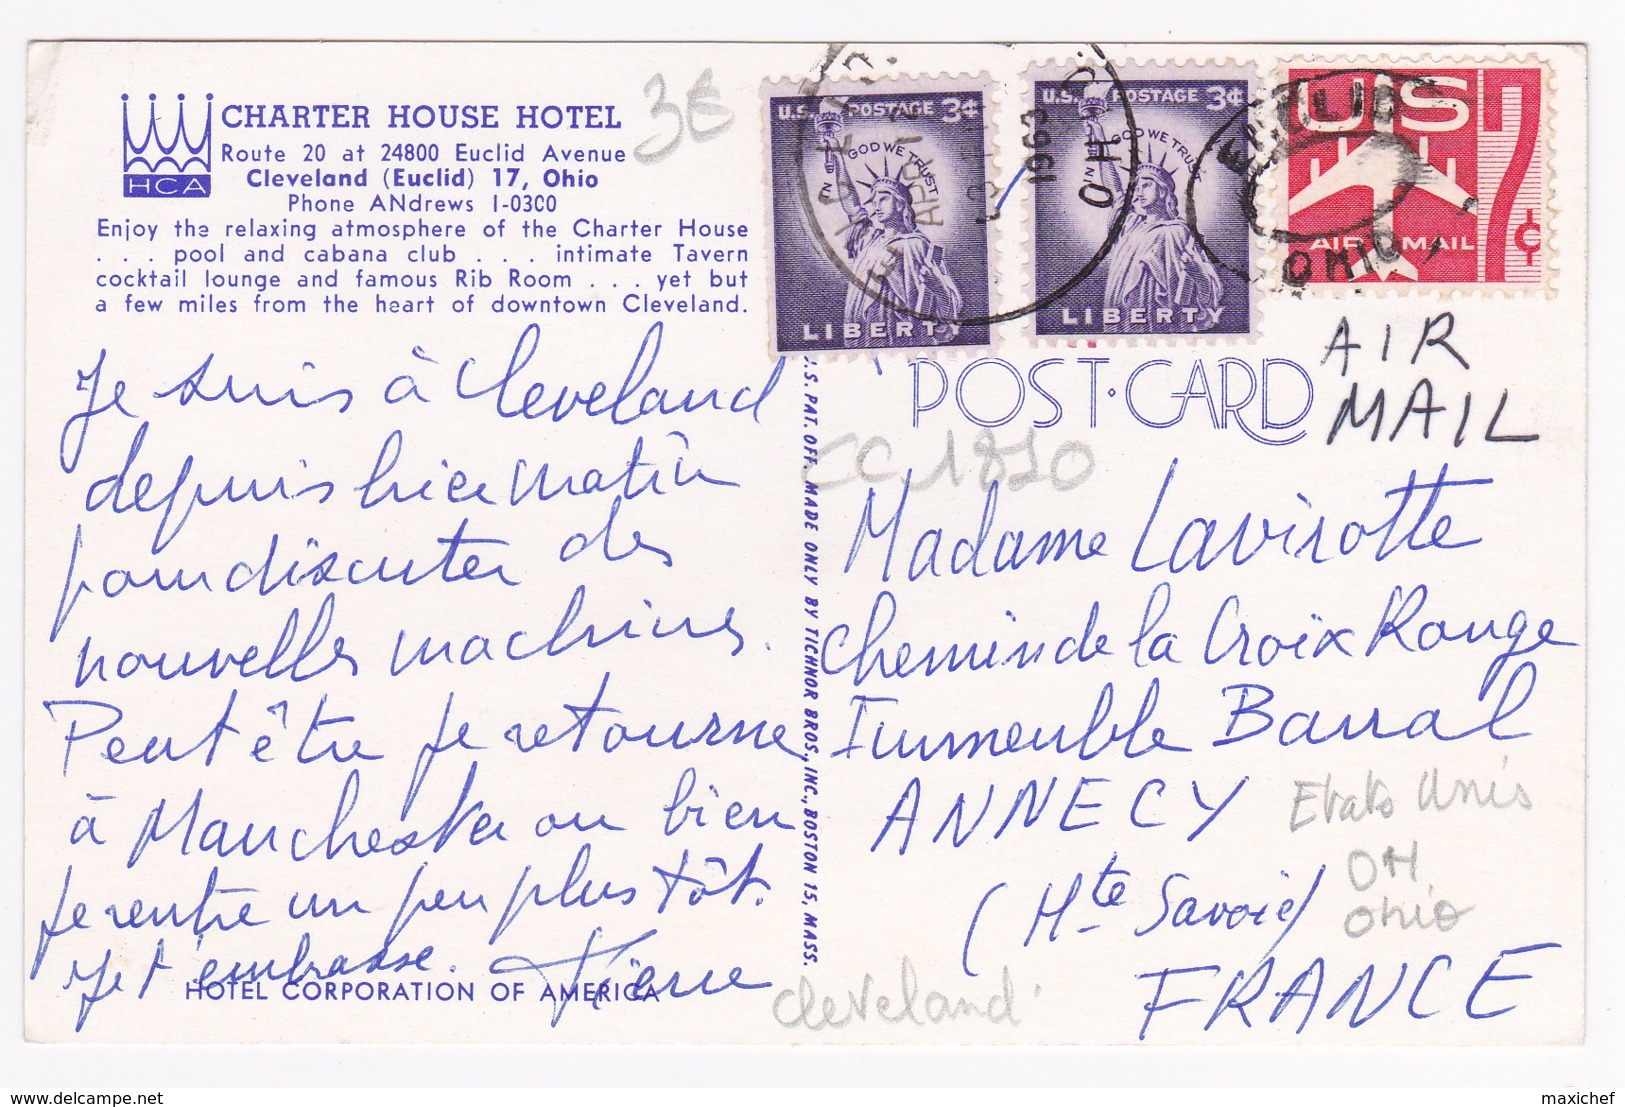 HCA
CHARTER HOUSE HOTEL
Route 20 at 24800 Euclid Avenue
Cleveland (Euclid) 17, Ohio
Phone ANdrews 1-0300
Enjoy the relaxing atmosphere of the Charter House
. . . pool and cabana club . . . intimate Tavern
cocktail lounge and famous Rib Room . . . yet but
a few miles from the heart of downtown Cleveland.
3€
U.S. POSTAGE 3¢
IN GOD WE TRUST
LIBERTY
U.S. POSTAGE 3¢
IN GOD WE TRUST
LIBERTY
1963
OHIO
US 7¢
AIR MAIL
EUCLID
OHIO
AIR
MAIL
POST·CARD
CC 1810
Je suis à Cleveland
depuis hier matin
pour discuter des
nouvelles machines.
Peut être je retourne
à Manchester ou bien
je rentre un peu plus tôt.
Je t'embrasse. Pierre
HOTEL CORPORATION OF AMERICA
U.S. PAT. OFF. MADE ONLY BY TICHNOR BROS., INC., BOSTON 15, MASS.
Madame Lavirotte
Chemin de la Croix Rouge
Immeuble Barral
ANNECY
(Hte Savoie)
FRANCE
Etats Unis
OH
Ohio
Cleveland
www.delcampe.net
maxichef